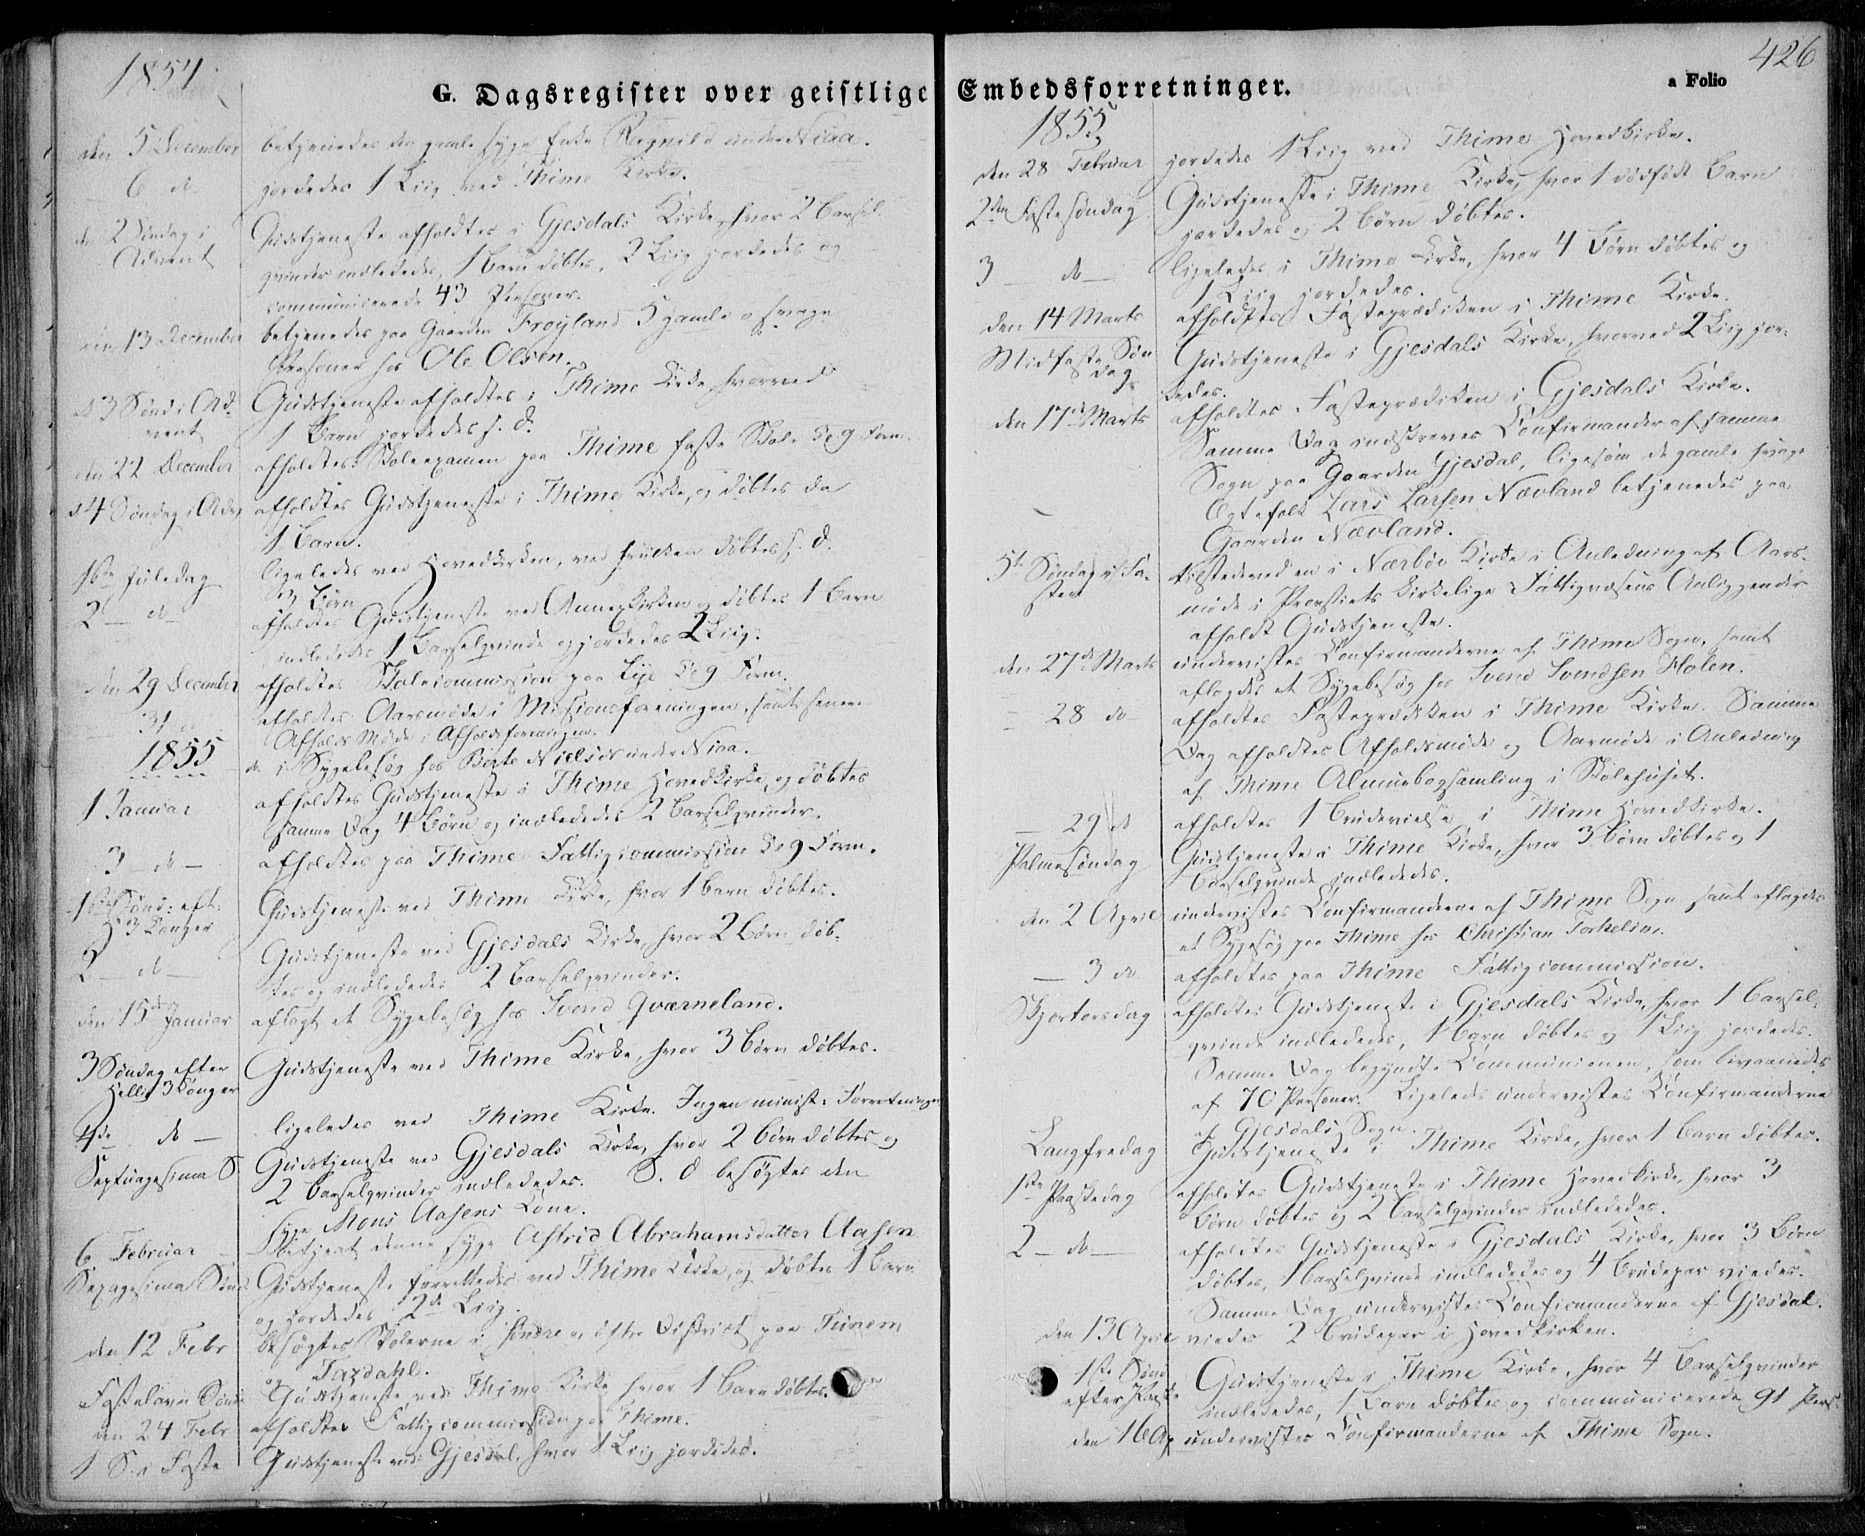 1854
G. Dagsregister over geistlige
den 5 December betjenedes den gamle syge Enke Ragnild under Niaa.
6 d. jordedes 1 Liig ved Thime Kirke.
den 2 Søndag i Gudstjeneste afholdtes i Gjesdals Kirke, hvor 2 Barsel-
Advent qvinder indlededes, 1 Barn døbtes, 2 Liig jordedes og
communicerede 43 Personer.
den 13 December betjenedes paa Gaarden Frøyland 5 gamle o svage
Personer hos Ole Olsen.
d 3 Sønd: i Ad- Gudstjeneste afholdtes i Thime Kirke, hvorved
vent 1 Barn jordedes s. d.
den 22 December afholdtes Skoleexamen paa Thime faste Skole Kl 9 Form.
d 4 Søndag i Adv afholdtes Gudstjeneste i Thime Kirke, og døbtes da
1 Barn.
1ste Juledag ligeledes ved Hovedkirken, ved hvilken døbtes s. d.
3 Børn
2 - d - afholdtes Gudstjeneste ved Annexkirken og døbtes 1 Barn
indlededes 1 Barselqvinde og jordedes 2 Liig.
den 29 December afholdtes Skolecommission paa Lye Kl 9 Form.
31 d afholdtes Aarsmøde i Missionsforeningen, samt senere
Afholds Møde i Afholdsforeningen.
1855 d. i Sygebesøg hos Berte Nielsd under Niaa.
1 Januar afholdtes Gudstjeneste i Thime Hovedkirke, og døbtes
samme Dag 4 Børn og indlededes 2 Barselqvinder.
3 - d - afholdtes paa Thime Fattigcommission Kl 9 Form.
1ste Sønd: eft: Gudstjeneste ved Thime Kirke, hvor 1 Barn døbtes.
H. 3 Konger
2 - d - Gudstjeneste ved Gjesdals Kirke, hvor 2 Børn døb-
tes og indlededes 2 Barselqvinder.
den 15de Januar aflagt et Sygebesøg hos Svend Qværneland.
3 Søndag efter Gudstjeneste ved Thime Kirke, hvor 3 Børn døbtes.
Hellig 3 Konger
4de do - ligeledes ved Thime Kirke. Ingen minist: Forretninger
Septuagesima S. Gudstjeneste ved Gjesdals Kirke, hvor 2 Børn døbtes og
2 Barselqvinder indlededes. S. d besøgtes den
syge Mons Aasens Kone.
6 Februar betjent denne syge Astrid Abrahamsdatter Aasen
Sexagesima Sønd Gudstjeneste forrettedes ved Thime Kirke, og døbtes 1 Barn
og jordedes 2de Liig.
den 12 Febr besøgtes Skolerne i søndre o østre District paa Tunem
og Taxdahl.
Fastelavn Sønd Gudstjeneste ved Thime Kirke, hvor 1 Barn døbtes.
den 24 Febr afholdtes Fattigcommission paa Thime.
1 S. i Faste Gudstjeneste ved Gjesdal, hvor 1 Liig jordedes.
426
Embedsforretninger.
a Folio
1855
den 28 Februar jordedes 1 Liig ved Thime Hovedkirke.
2den Fastesøndag Gudstjeneste i Thime Kirke, hvor 1 dødfødt Barn
jordedes og 2 Børn døbtes.
3 - do - ligeledes i Thime Kirke, hvor 4 Børn døbtes og
1 Liig jordedes.
den 14 Marts afholdtes Fasteprædiken i Thime Kirke.
Midfaste Søn- Gudstjeneste i Gjesdals Kirke, hvorved 2 Liig jor-
dag dedes.
den 17de Marts afholdtes Fasteprædiken i Gjesdals Kirke.
Samme Dag indskreves Confirmander af samme
Sogn paa Gaarden Gjesdal, ligesom de gamle svage
Egtefolk Lars Larsen Nævland betjenedes paa
Gaarden Nævland.
5te Søndag i Fa- tilstedeved en i Nærbøe Kirke i Anledning af Aars-
sten møde i Provstiets kirkelige Fattigvæsens Anliggender
afholdt Gudstjeneste.
den 27de Marts undervistes Confirmanderne af Thime Sogn, samt
aflagdes et Sygebesøg hos Svend Svendsen Holen.
- 28 do - afholdtes Fasteprædiken i Thime Kirke. Samme
Dag afholdtes Afholdsmøde og Aarmøde i Anledning
af Thime Almuebogsamling i Skolehuset.
- 29 d afholdtes 1 Brudevielse i Thime Hovedkirke.
Palmesøndag Gudstjeneste i Thime Kirke, hvor 3 Børn døbtes og 1
Barselqvinde indlededes.
den 2 April undervistes Confirmanderne af Thime Sogn samt aflagdes
et Sygesøg paa Thime hos Christian Torkelsen.
- 3 d afholdtes paa Thime Fattigcommission.
Skjærtorsdag afholdtes Gudstjeneste i Gjesdals Kirke, hvor 1 Barsel-
qvinde indlededes, 1 Barn døbtes og 1 Liig jordedes.
Samme Dag begyndte Communionen, som bivaanedes
af 70 Personer. Ligeledes undervistes Confirmanderne
af Gjesdals Sogn.
Langfredag Gudstjeneste i Thime Kirke, hvor 1 Barn døbtes.
1ste Paaskedag afholdtes Gudstjeneste i Thime Hovedkirke, hvor 3
Børn døbtes og 2 Barselqvinder indlededes.
2 - do - afholdtes Gudstjeneste i Gjesdals Kirke, hvor 3 Børn
døbtes, 1 Barselqvinde indlededes og 4 Brudepar viedes.
Samme Dag undervistes Confirmanderne af Gjesdal.
den 13 April viedes 2 Brudepar i Hovedkirken.
1ste Sønd Gudstjeneste i Thime Kirke, hvor 4 Barselqvinder
efter Paaske indlededes, 1 Barn døbtes og communicerede 91 Pers:
den 16 Ap undervistes Confirmanderne af Thime Sogn.